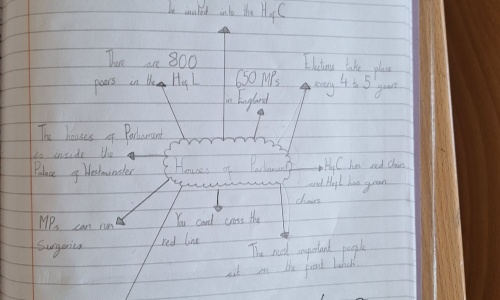 be invited into the HofC
There are 800
peers in the HofL
650 MPs
in England
Elections take place
every 4 to 5 years
The houses of Parliament
is inside the
Palace of Westminster
Houses of Parliament
HofC has red chairs
and HofL has green
chairs
MPs can run
Surgeries
You can't cross the
red line
The most important people
sit on the front bench